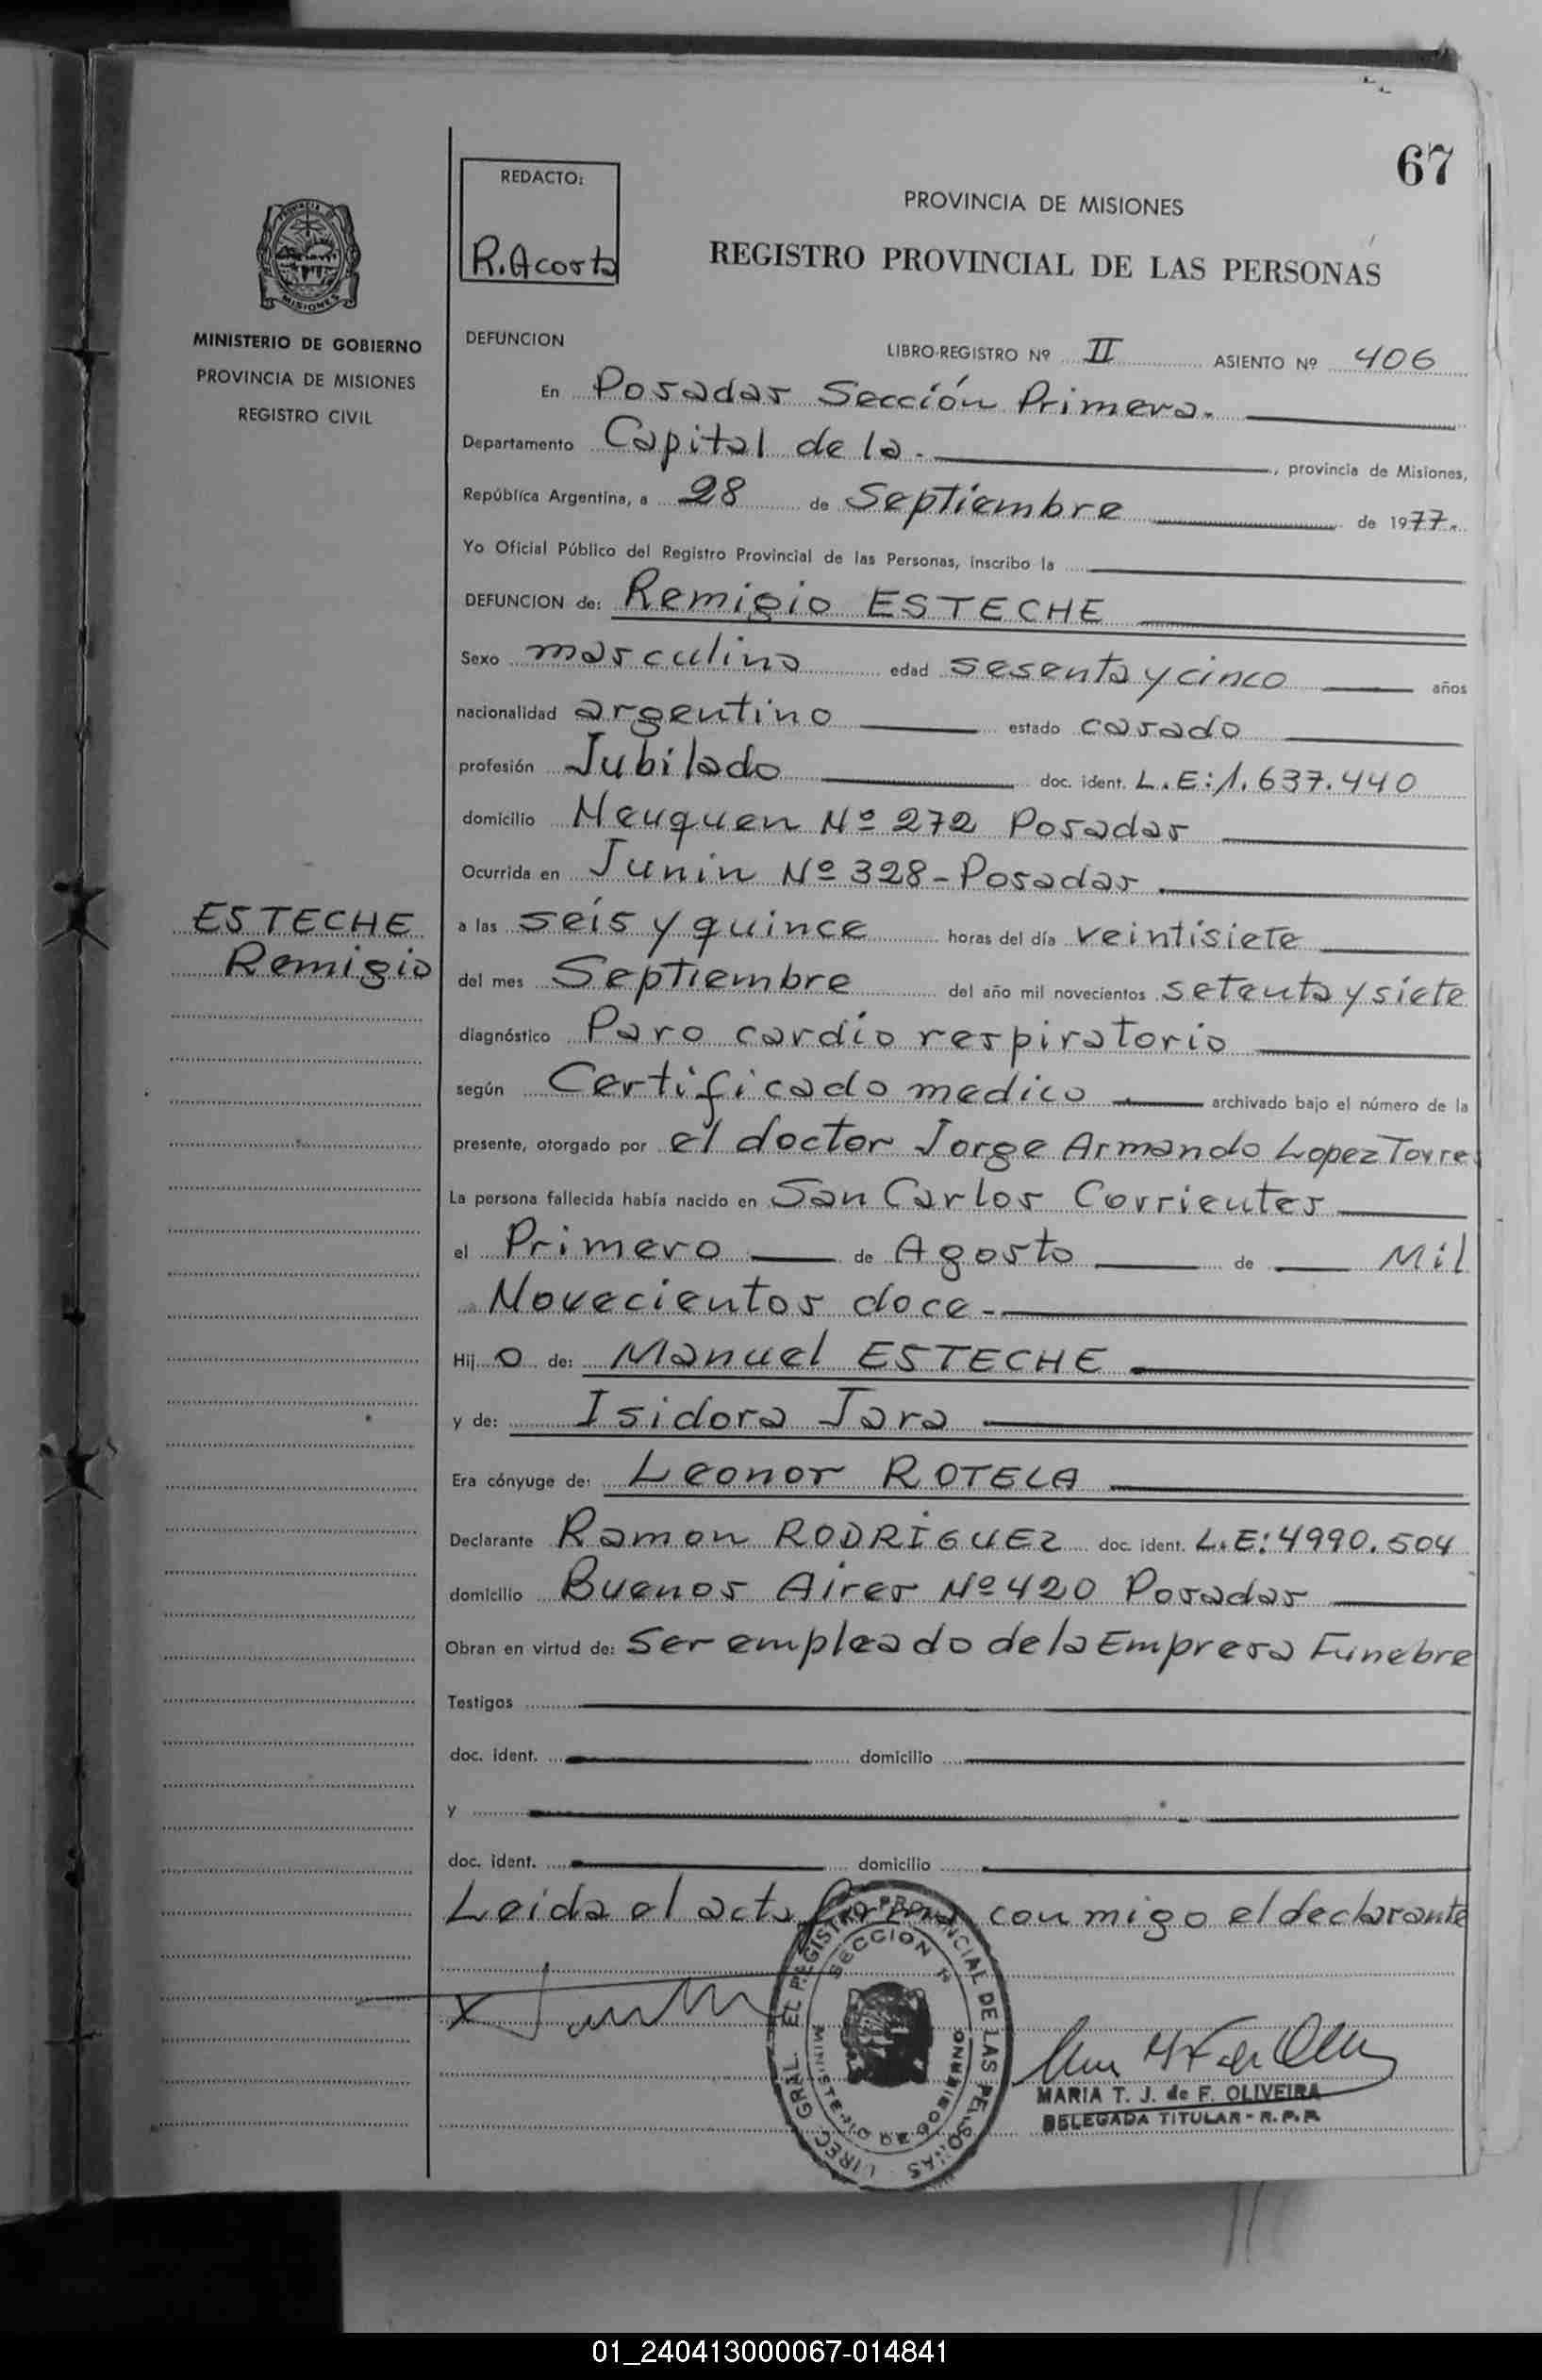 67
REDACTO:
R. Acosta
PROVINCIA DE MISIONES
REGISTRO PROVINCIAL DE LAS PERSONAS
MISIONES
MINISTERIO DE GOBIERNO
PROVINCIA DE MISIONES
REGISTRO CIVIL
DEFUNCION
LIBRO-REGISTRO Nº II ASIENTO Nº 406
En Posadas Sección Primera.
Departamento Capital de la. , provincia de Misiones,
República Argentina, a 28 de Septiembre de 1977.
Yo Oficial Público del Registro Provincial de las Personas, inscribo la
DEFUNCION de: Remigio ESTECHE
Sexo masculino edad sesenta y cinco años
nacionalidad argentino estado casado
profesión Jubilado doc. ident. L.E: 1.637.440
domicilio Neuquen Nº 272 Posadas
Ocurrida en Junin Nº 328 - Posadas.
ESTECHE
Remigio
a las seis y quince horas del día veintisiete
del mes Septiembre del año mil novecientos setenta y siete
diagnóstico Paro cardio respiratorio
según Certificado medico archivado bajo el número de la
presente, otorgado por el doctor Jorge Armando Lopez Torres
La persona fallecida había nacido en San Carlos Corrientes
el Primero de Agosto de Mil
Novecientos doce -
Hijo de: Manuel ESTECHE
y de: Isidora Jara
Era cónyuge de: Leonor ROTELA
Declarante Ramon RODRIGUEZ doc. ident. L.E: 4990.504
domicilio Buenos Aires Nº 420 Posadas
Obran en virtud de: Ser empleado de la Empresa Funebre
Testigos
doc. ident. domicilio
y
doc. ident. domicilio
Leida el acta firma conmigo el declarante
DIREC. GRAL. EL REGISTRO PROVINCIAL DE LAS PERSONAS
SECCION
MINISTERIO DE GOBIERNO
MARIA T. J. de F. OLIVEIRA
DELEGADA TITULAR - R. P. P.
01_240413000067-014841